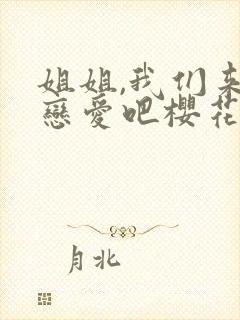 姐姐,我们来
戀愛吧櫻花
月北